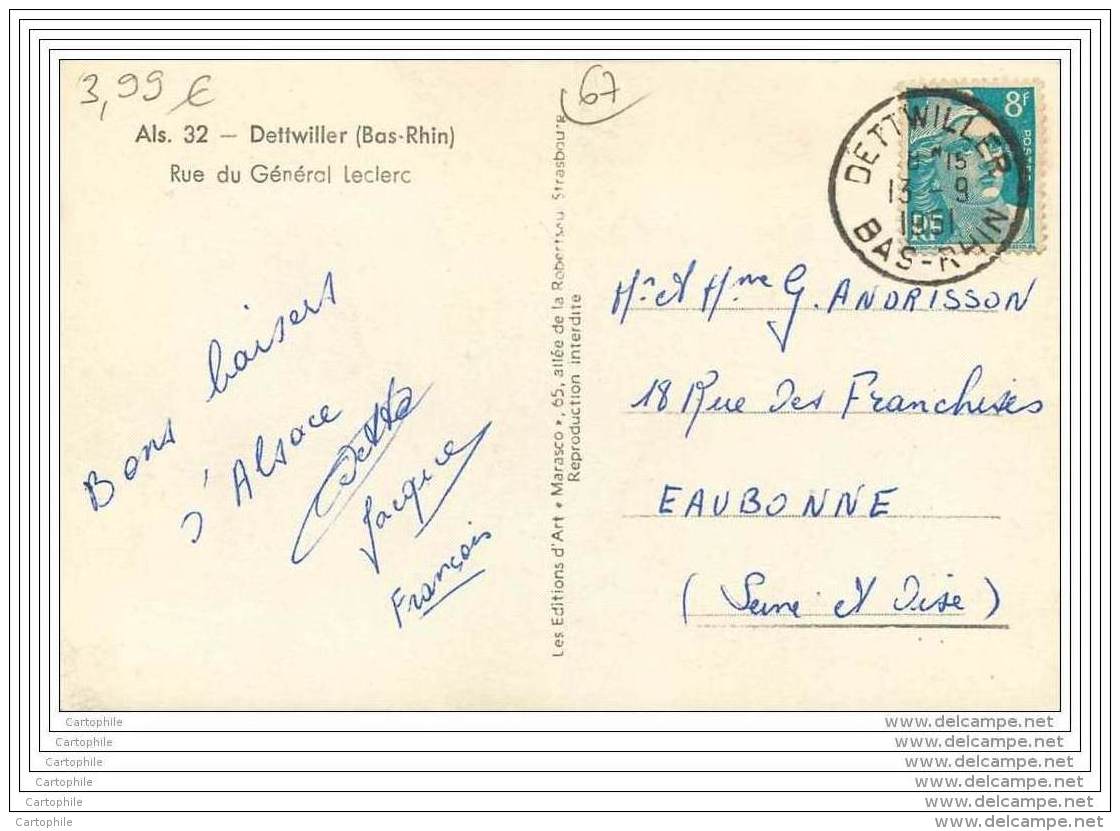 3,99 €
67
Als. 32 — Dettwiller (Bas-Rhin)
Rue du Général Leclerc
8F
POSTES
RF
DETTWILLER
15
13 - 9
1951
BAS-RHIN
Bons baisers
d'Alsace
Jacques
François
Les Editions d'Art « Marasco », 65, allée de la Robertsau Strasbourg
Reproduction interdite
Mr et Mme G. ANDRISSON
18 Rue Des Franchises
EAUBONNE
(Seine et Oise)
Cartophile
www.delcampe.net
Cartophile
www.delcampe.net
Cartophile
www.delcampe.net
Cartophile
www.delcampe.net
Cartophile
www.delcampe.net
Cartophile
www.delcampe.net